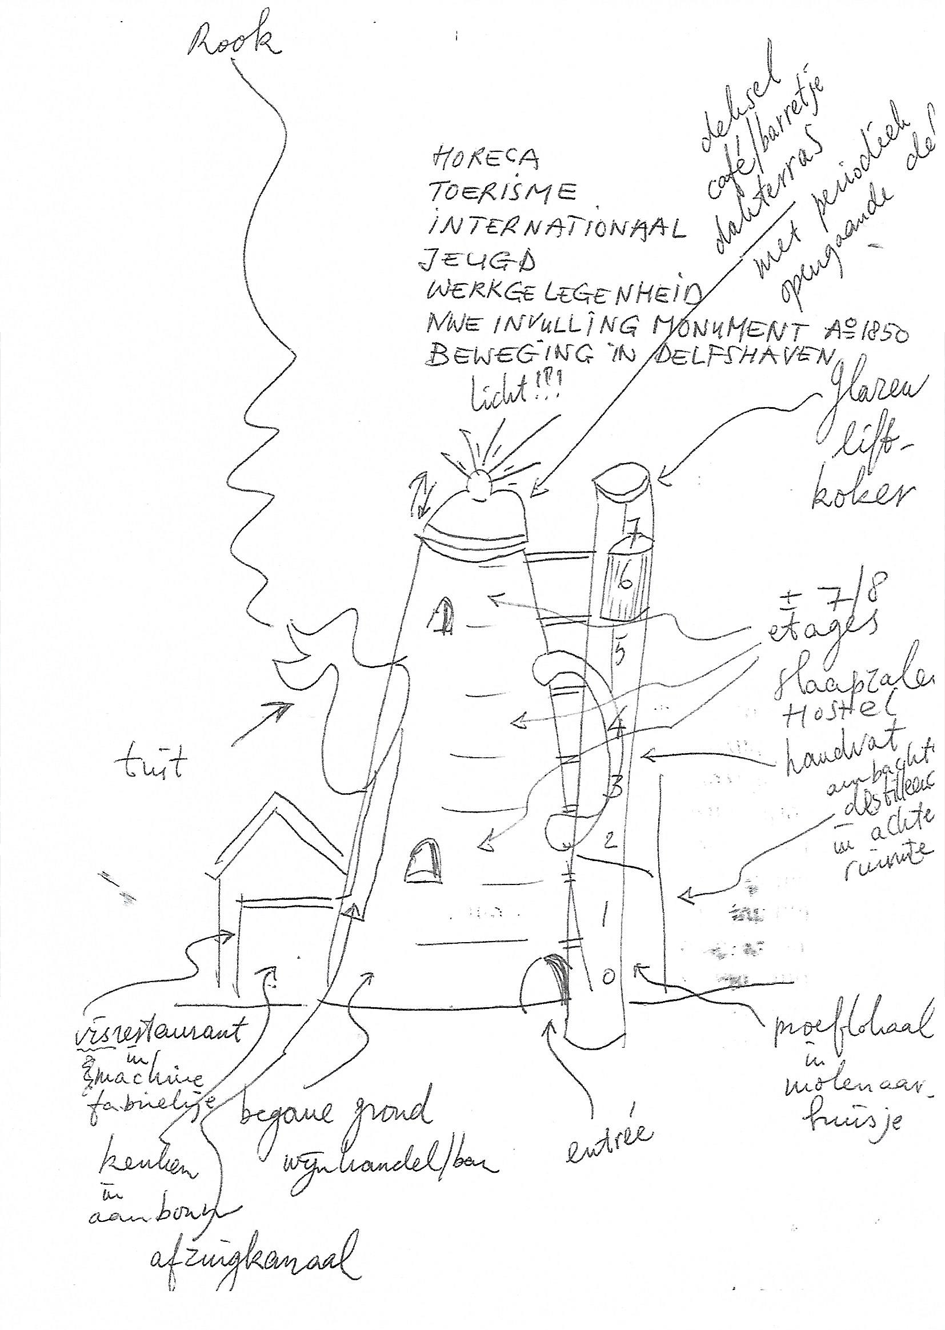 Rook
deksel
café/barretje
dakterras
met periodiek
opengaande de
HORECA
TOERISME
INTERNATIONAAL
JEUGD
WERKGELEGENHEID
NWE INVULLING MONUMENT Aº 1850
BEWEGING IN DELFSHAVEN
licht!!!
glazen
lift-
koker
7
6
5
4
3
2
1
0
± 7/8
etages
slaapzale
HOSTEL
handvat
ambacht
destilleer
in achte
ruimte
tuit
visrestaurant
in
machine
fabriekje
keuken
in
aanbouw
afzuigkanaal
begane grond
wijnhandel/bar
entrée
proeflokaal
in
molenaar-
huisje